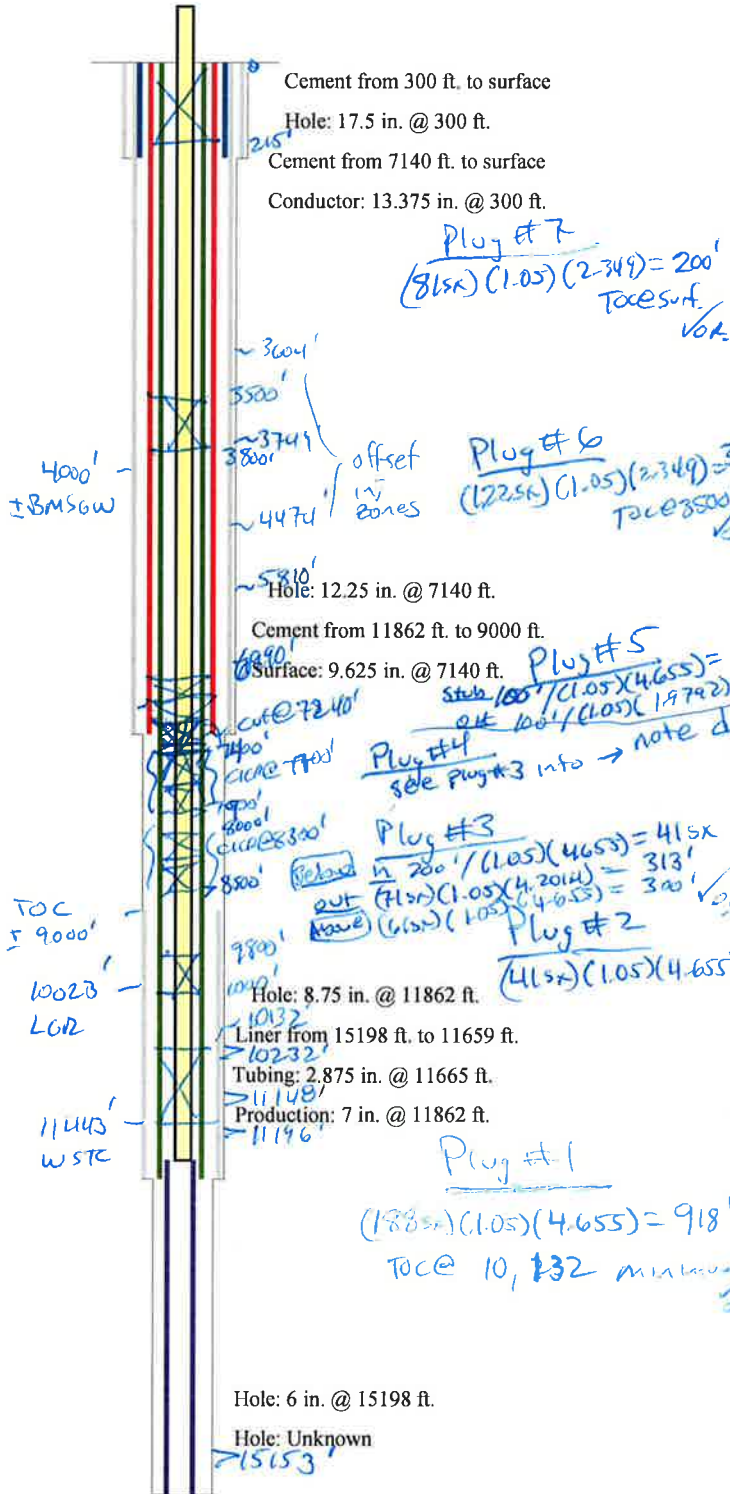 0
Cement from 300 ft. to surface
Hole: 17.5 in. @ 300 ft.
215'
Cement from 7140 ft. to surface
Conductor: 13.375 in. @ 300 ft.
Plug #7
(81sx)(1.05)(2.349)= 200'
TOC@surf.
✓OK.
~3604'
3500'
~3749'
3800'
offset
inj
zones
4000'
±BMSGW
Plug #6
(122sx)(1.05)(2.349)=3
TOC@3500
~4474'
~5810'
Hole: 12.25 in. @ 7140 ft.
Cement from 11862 ft. to 9000 ft.
6990'
Surface: 9.625 in. @ 7140 ft.
Plug #5
stub 100'/(1.05)(4.655)=
out 100'/(1.05)(1.9792)
cut@7240'
7400'
CICR@7700'
Plug #4
see plug #3 info → note d
7900'
8000'
CICR@8300'
8500'
Plug #3
Below in 200'/(1.05)(4.655)= 41sx
out (71sx)(1.05)(4.2014)= 313'
Above (61sx)(1.05)(4.655)= 300'
TOC
± 9000'
Plug #2
(41sx)(1.05)(4.655
9800'
10023'
LGR
Hole: 8.75 in. @ 11862 ft.
10132'
Liner from 15198 ft. to 11659 ft.
>10232'
Tubing: 2.875 in. @ 11665 ft.
>11148'
Production: 7 in. @ 11862 ft.
>11196'
11443'
WSTC
Plug #1
(188sx)(1.05)(4.655)= 918'
TOC@ 10,132
Hole: 6 in. @ 15198 ft.
Hole: Unknown
>15153'